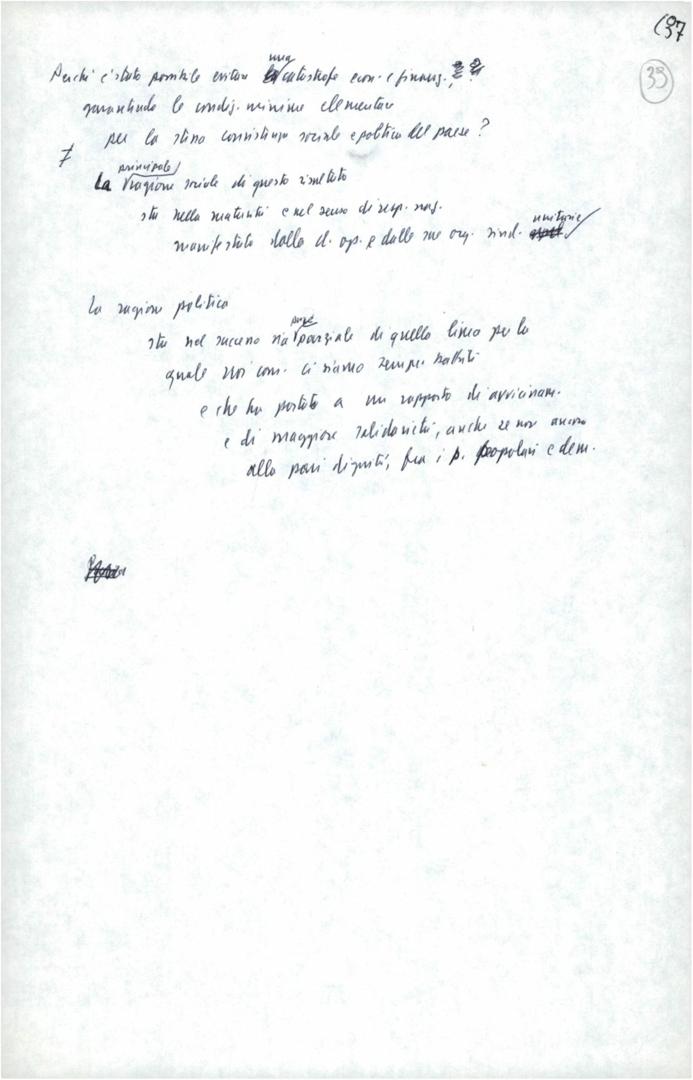 (37
33
Perchè è stato possibile evitare una catastrofe econ. e finanz.,
garantendo le condiz. minime elementari
per la stessa consistenza sociale e politica del paese?
La principale ragione sociale di questo risultato
sta nella maturità e nel senso di resp. naz.
manifestato dalla cl. op. e dalle sue org. sind. unitarie
La ragione politica
sta nel successo sia pure parziale di quella linea per la
quale noi com. ci siamo sempre battuti
e che ha portato a un rapporto di avvicinam.
e di maggiore solidarietà, anche se non ancora
alla pari dignità, fra i p. popolari e dem.